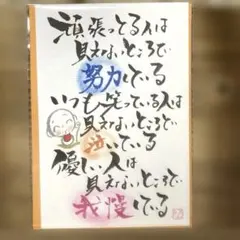 頑張っとる人は
見えないところで
努力している
いつも笑っている人は
見えないところで
泣いている
優しい人は
見えないところで
我慢してる